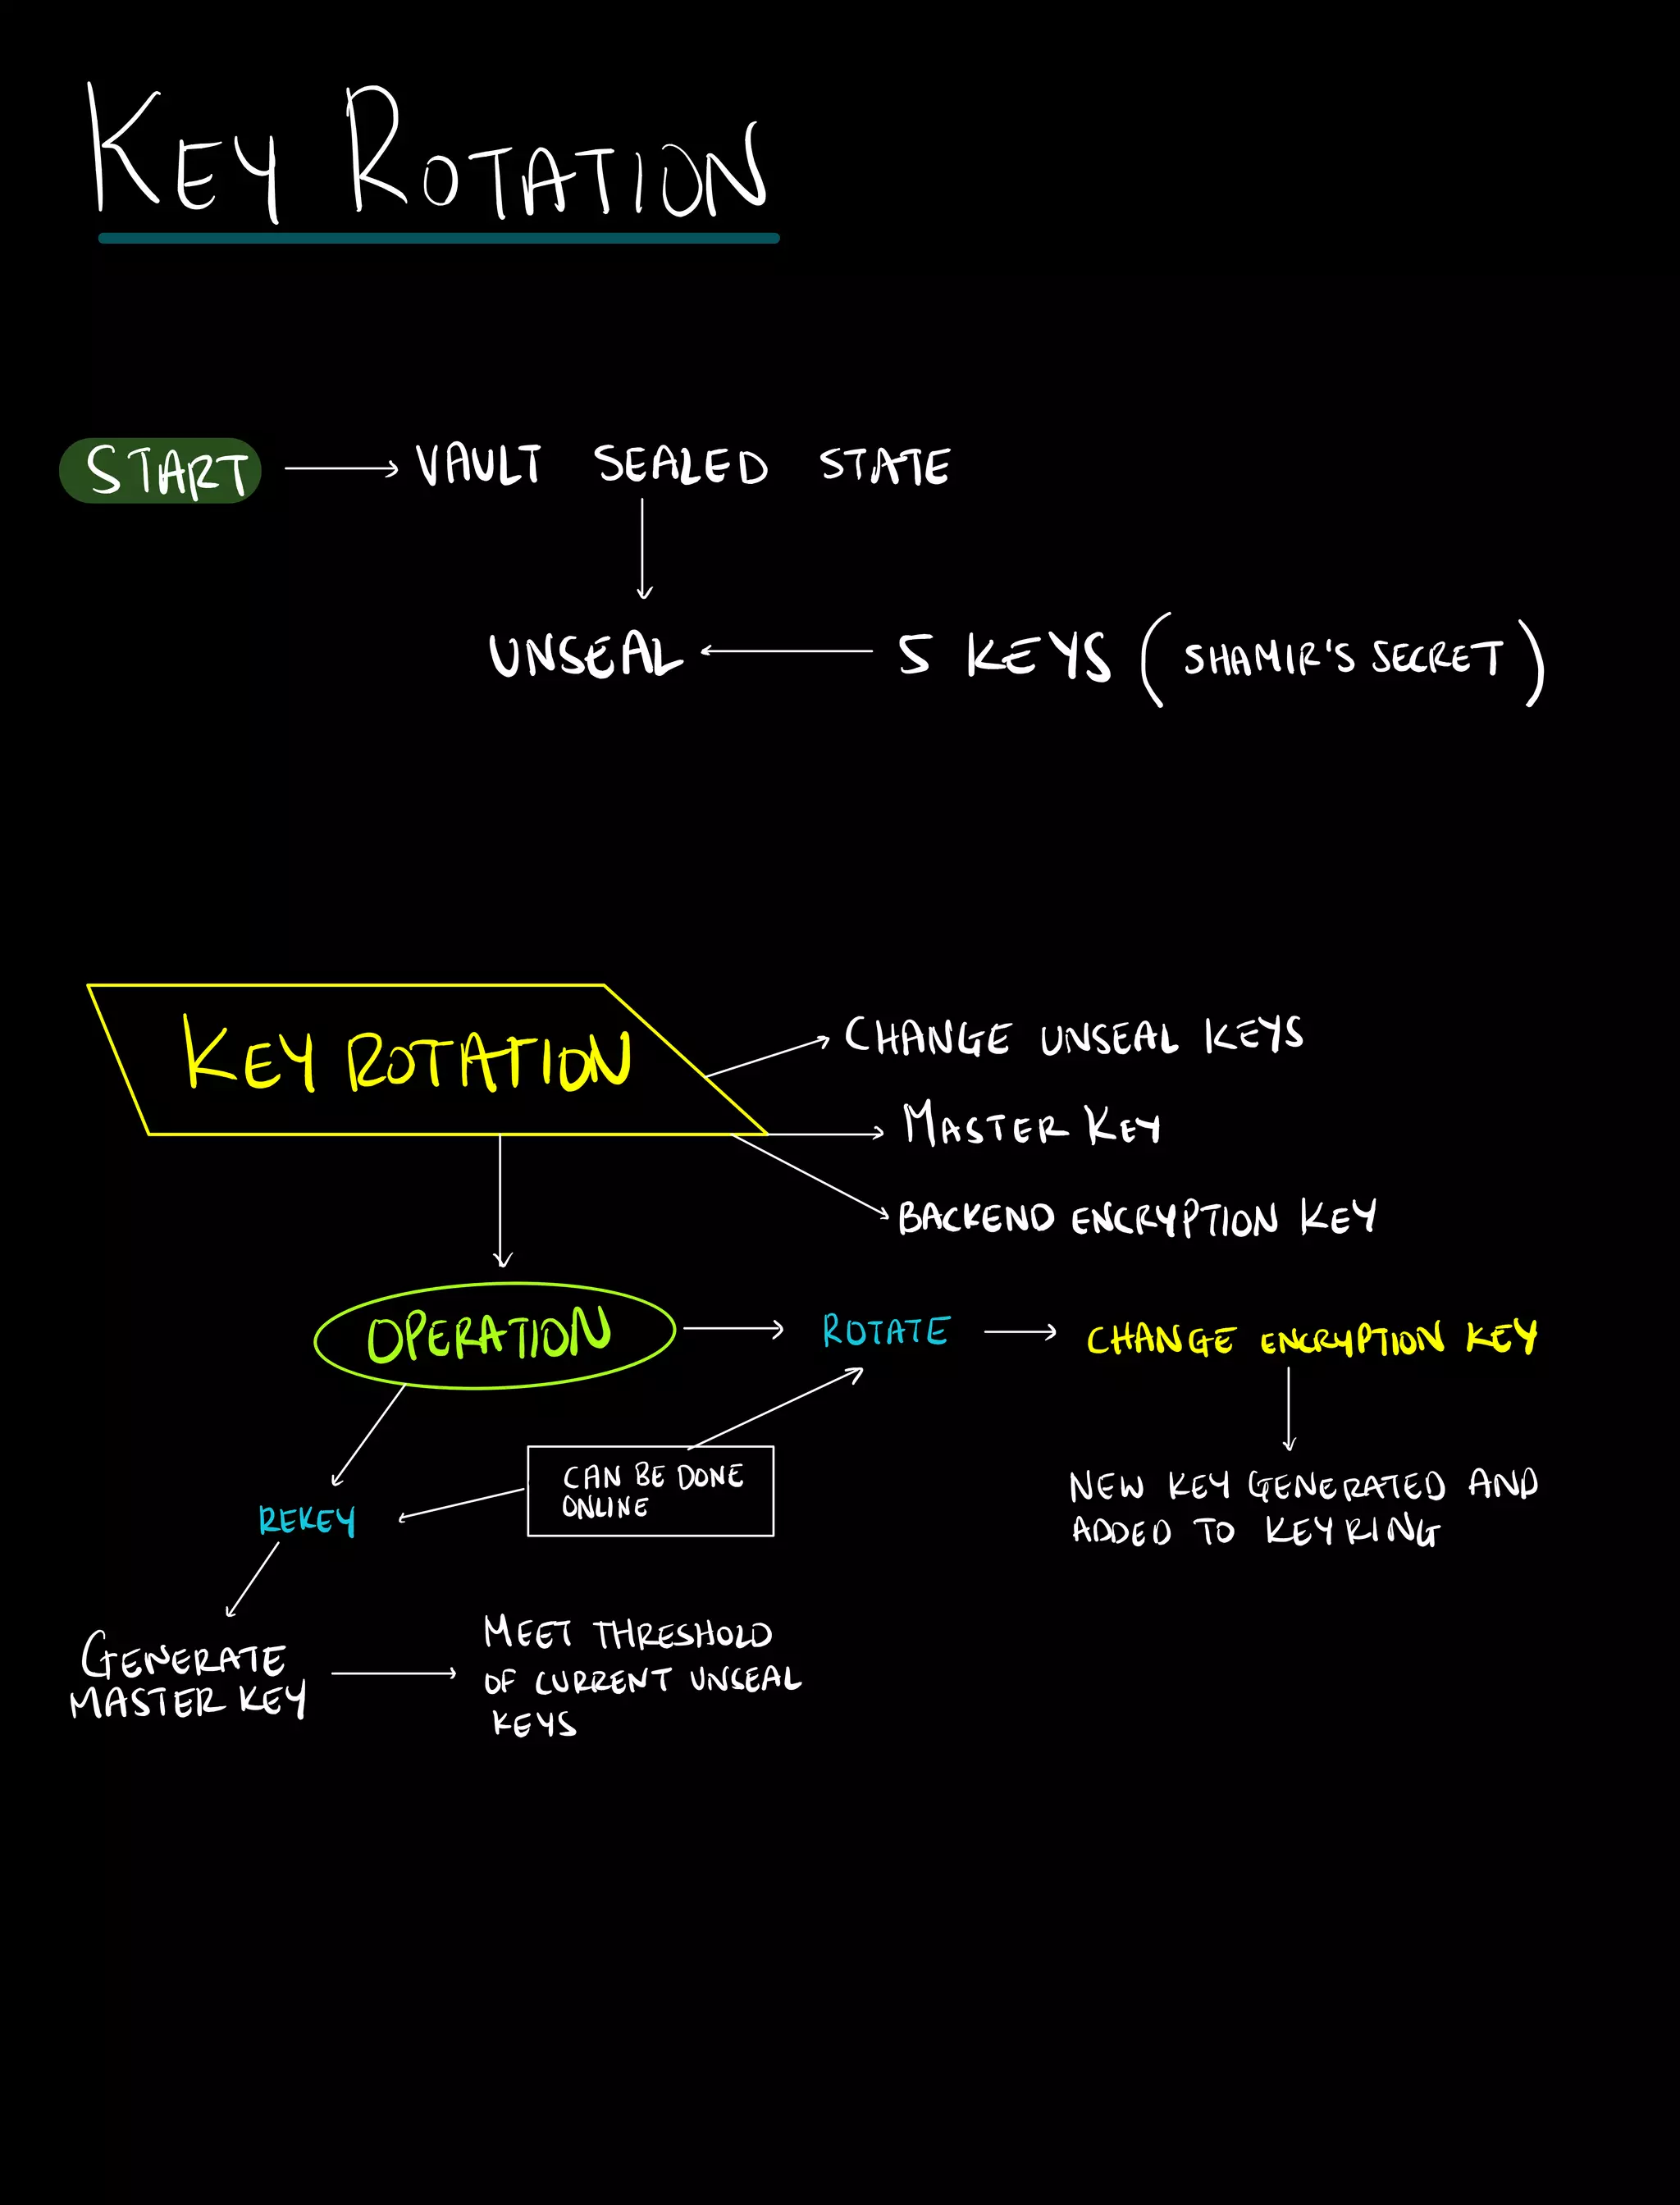 KEY ROTATION
START
VAULT SEALED STATE
UNSEAL
5 KEYS (SHAMIR'S SECRET)
KEY ROTATION
CHANGE UNSEAL KEYS
MASTER KEY
BACKEND ENCRYPTION KEY
OPERATION
ROTATE
CHANGE ENCRYPTION KEY
CAN BE DONE
ONLINE
NEW KEY GENERATED AND
ADDED TO KEYRING
REKEY
GENERATE
MASTER KEY
MEET THRESHOLD
OF CURRENT UNSEAL
KEYS